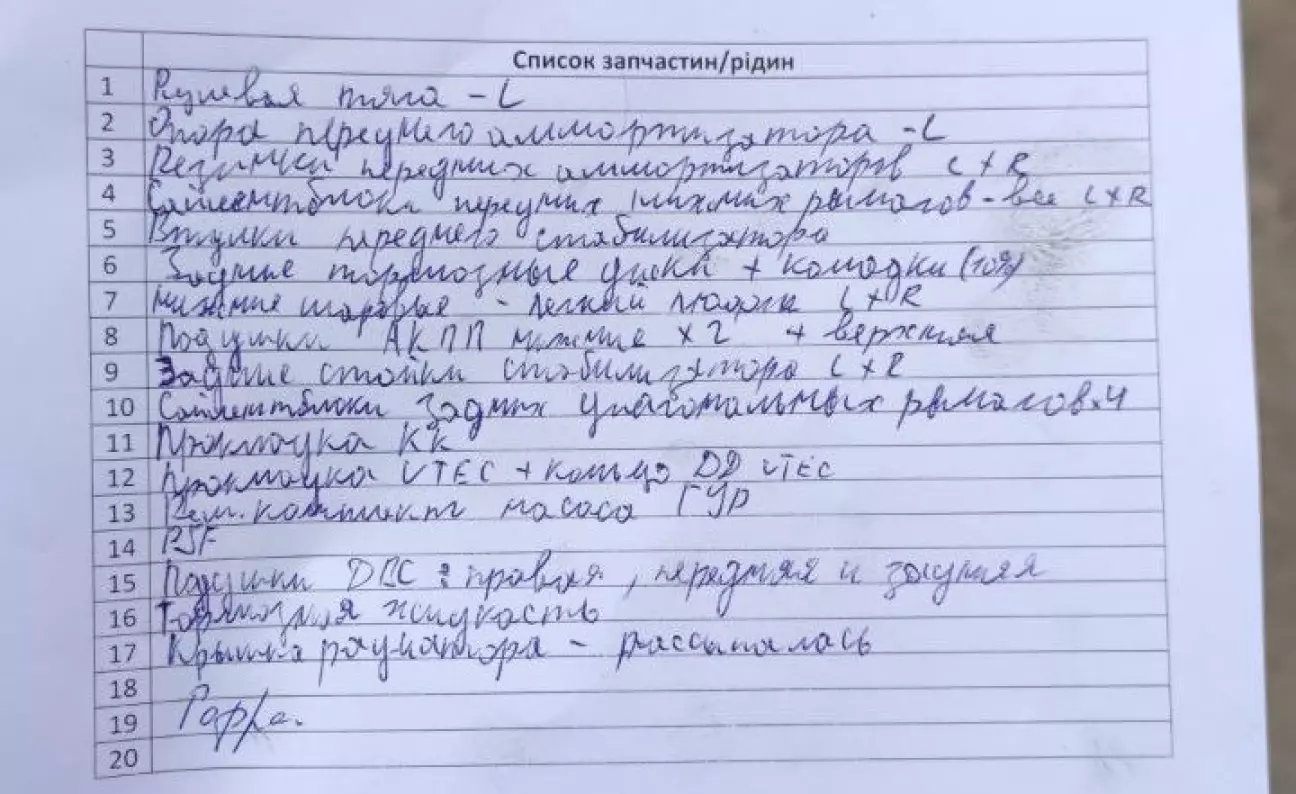 Список запчастин/рідин
1 Рулевая тяга - L
2 Опора переднего аммортизатора - L
3 Резинки передних аммортизаторов L + R
4 Сайлентблоки передних нижних рычагов - все L + R
5 Втулки переднего стабилизатора
6 Задние тормозные диски + колодки (10%)
7 Нижние шаровые - легкий люфт L + R
8 Подушки АКПП нижние x 2 + верхняя
9 Задние стойки стабилизатора L + R
10 Сайлентблоки задних диагональных рычагов x 4
11 Прокладка КК
12 Прокладка VTEC + кольцо ДД VTEC
13 Рем. комплект насоса ГУР
14 PSF
15 Подушки ДВС : правая, передняя и задняя
16 Тормозная жидкость
17 Крышка радиатора - рассыпалась
18
19
20